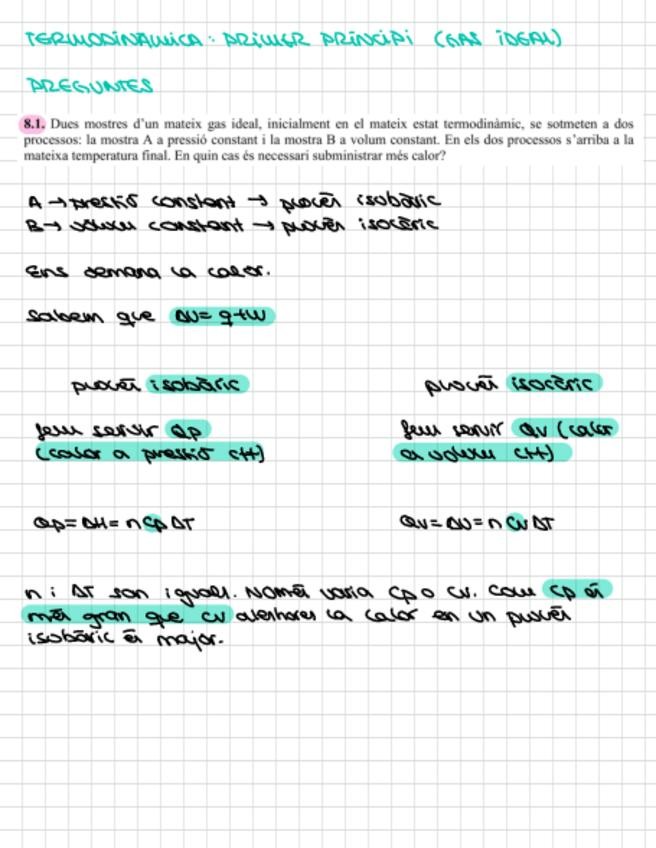 TERMODINÀMICA: PRIMER PRINCIPI (GAS IDEAL)
PREGUNTES
8.1. Dues mostres d'un mateix gas ideal, inicialment en el mateix estat termodinàmic, se sotmeten a dos
processos: la mostra A a pressió constant i la mostra B a volum constant. En els dos processos s'arriba a la
mateixa temperatura final. En quin cas és necessari subministrar més calor?
A → pressió constant → procés isobàric
B → volum constant → procés isocòric
Ens demana la calor.
Sabem que ΔU= q+w
procés isobàric
fem servir Qp
(calor a pressió ctt)
Qp= ΔH= n Cp ΔT
procés isocòric
fem servir Qv (calor
a volum ctt)
Qv= ΔU= n Cv ΔT
n i ΔT son iguals. Només varia Cp o Cv. Com Cp és
més gran que Cv aleshores la calor en un procés
isobàric és major.